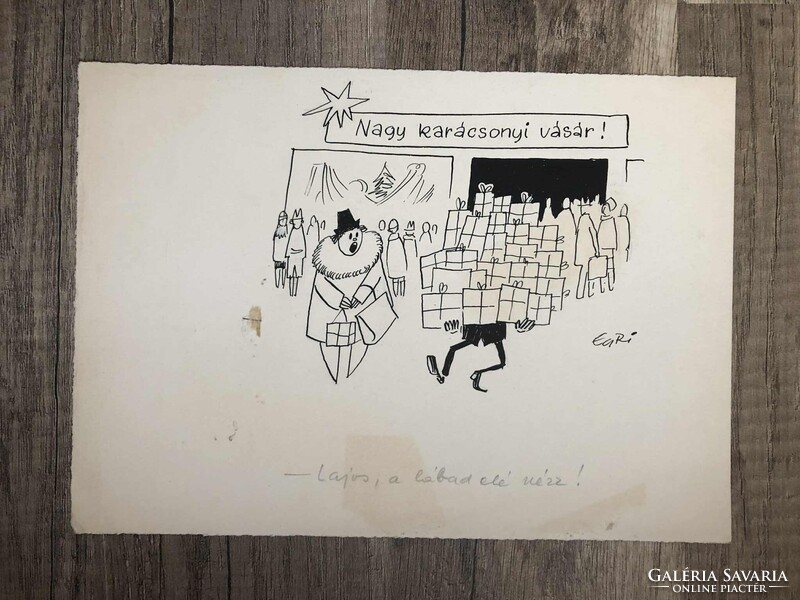 Nagy karácsonyi vásár!
EGRi
— Lajos, a lábad elé nézz!
GALÉRIA SAVARIA
ONLINE PIACTÉR